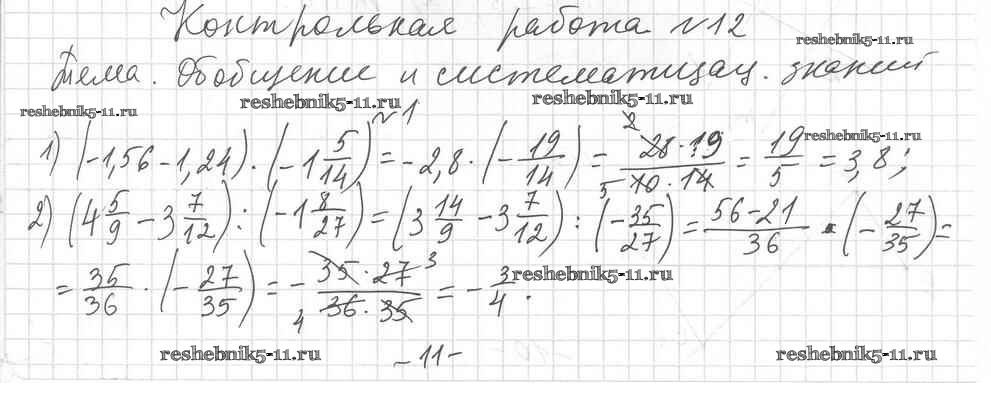 Контрольная работа №12
reshebnik5-11.ru
Тема. Обобщение и систематизац. знаний
reshebnik5-11.ru reshebnik5-11.ru reshebnik5-11.ru
№1
1) (-1,56-1,24)·(-1 5/14) = -2,8·(-19/14) = 28·19/10·14 = 19/5 = 3,8; reshebnik5-11.ru
2) (4 5/9 - 3 7/12) : (-1 8/27) = (3 14/9 - 3 7/12) : (-35/27) = 56-21/36 · (-27/35) =
= 35/36 · (-27/35) = - 35·27/36·35 = - 3/4. reshebnik5-11.ru
reshebnik5-11.ru -11- reshebnik5-11.ru